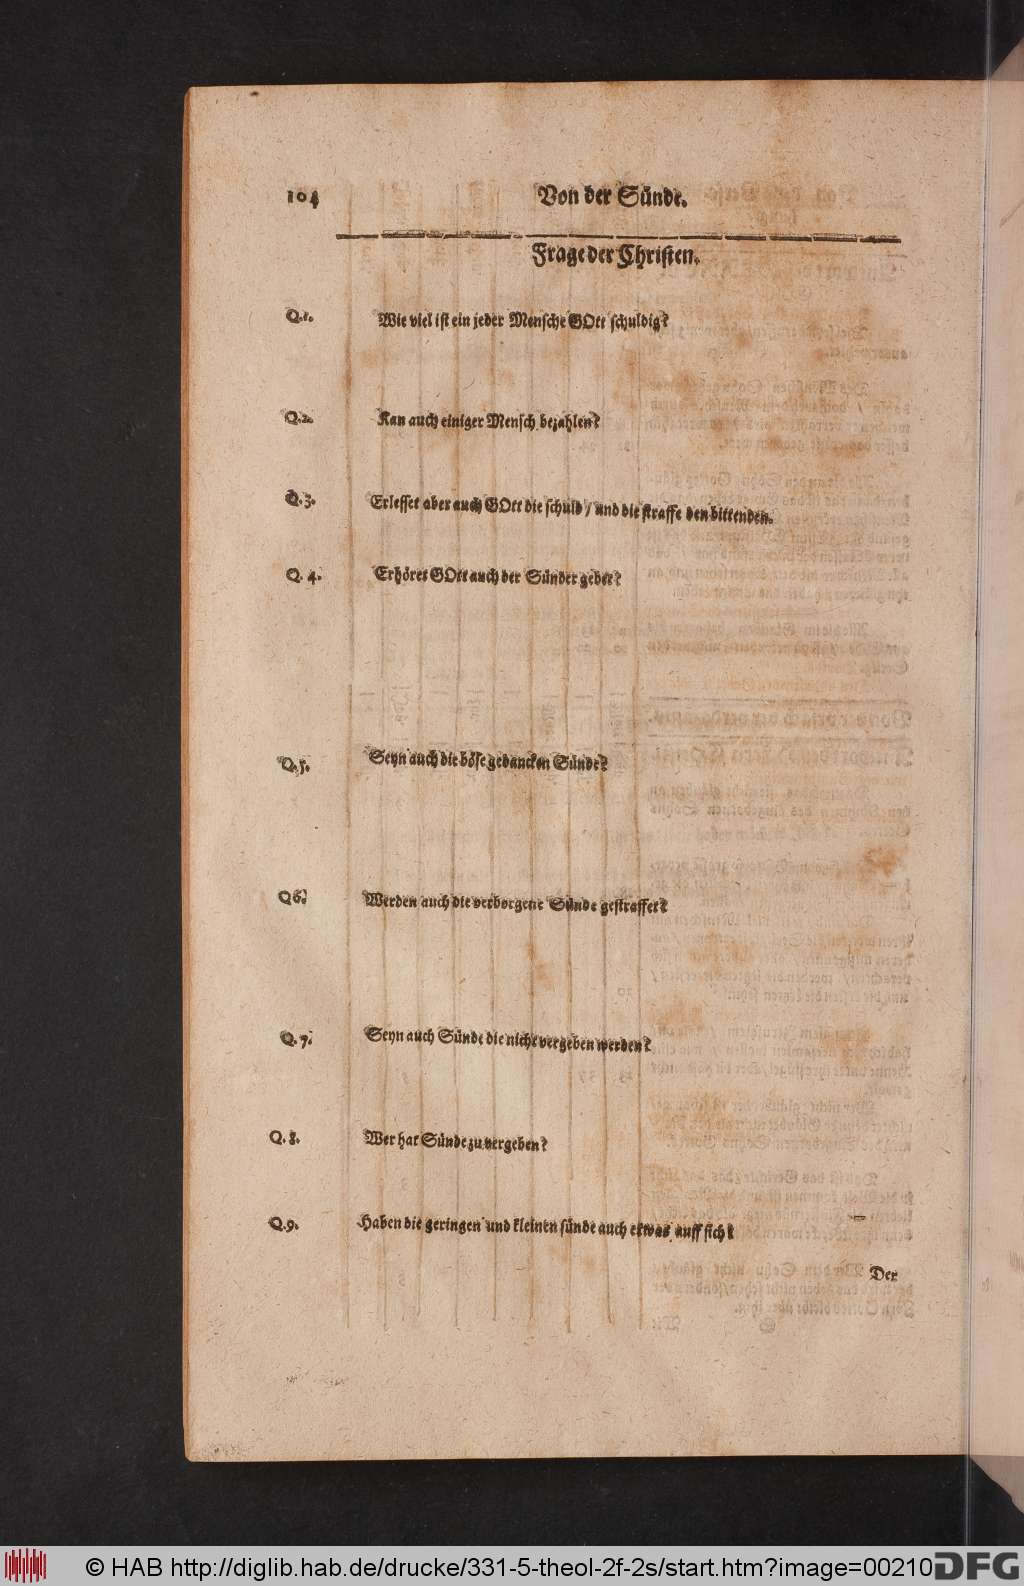 104 Von der Sünde.
Frage der Christen.
Q.1. Wie viel ist ein jeder Mensche GOtt schuldig?
Q.2. Kan auch einiger Mensch bezahlen?
Q.3. Erlesset aber auch GOtt die schuld / und die straffe den bittenden.
Q. 4. Erhöret GOtt auch der Sünder gebet?
Q.5. Seyn auch die böse gedancken Sünde?
Q6. Werden auch die verborgene Sünde gestraffet?
Q.7. Seyn auch Sünde die nicht vergeben werden?
Q.8. Wer hat Sünde zu vergeben?
Q.9. Haben die geringen und kleinen sünde auch etwas auff sich?
Der
© HAB http://diglib.hab.de/drucke/331-5-theol-2f-2s/start.htm?image=00210
DFG